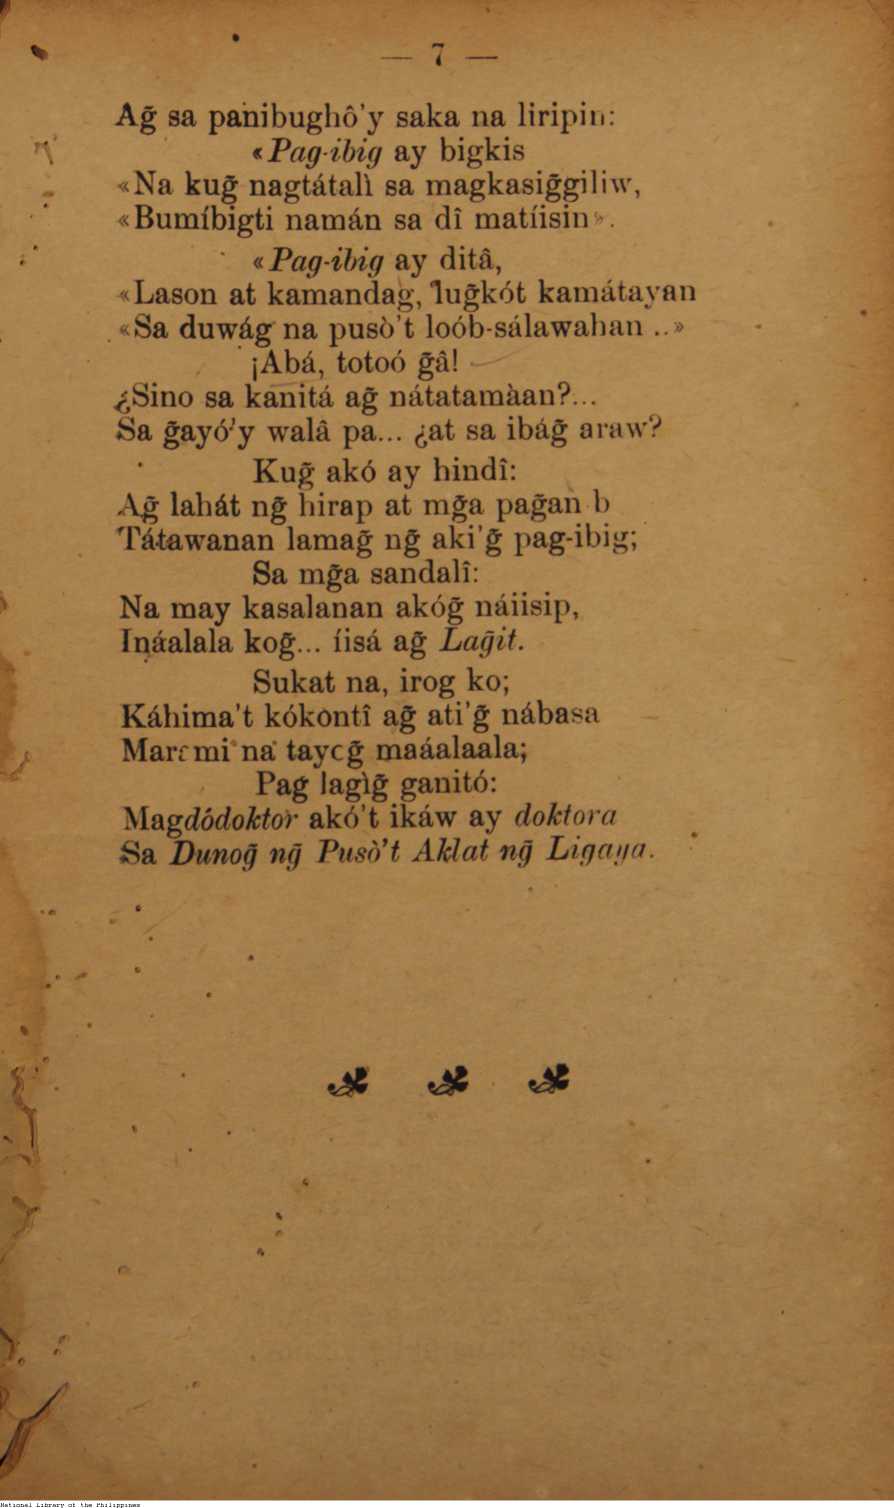 — 7 —
Ag̃ sa panibughô'y saka na liripin:
«Pag-ibig ay bigkis
«Na kug̃ nagtátalì sa magkasig̃giliw,
«Bumíbigti namán sa dî matíisin».
«Pag-ibig ay ditâ,
«Lason at kamandag, lug̃kót kamátayan
«Sa duwág na pusò't loób-sálawahan ..»
¡Abá, totoó g̃â!
¿Sino sa kanitá ag̃ nátatamàan?...
Sa g̃ayó'y walâ pa... ¿at sa ibág̃ araw?
Kug̃ akó ay hindî:
Ag̃ lahát ng̃ hirap at mg̃a
Tátawanan lamag̃ ng̃ aki'g̃ pag-ibig;
Sa mg̃a sandalî:
Na may kasalanan akóg̃ náiisip,
Ináalala kog̃... íisá ag̃ Lag̃it.
Sukat na, irog ko;
Káhima't kókontî ag̃ ati'g̃ nábasa
na maáalaala;
Pag lagìg̃ ganitó:
Magdódoktor akó't ikáw ay doktora
Sa Dunog̃ ng̃ Pusò't Aklat ng̃ Ligaya.
National Library of the Philippines